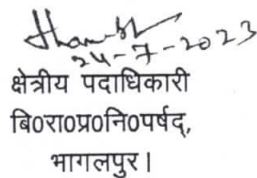 24-7-2023
क्षेत्रीय पदाधिकारी
बि०रा०प्र०नि०पर्षद्,
भागलपुर।